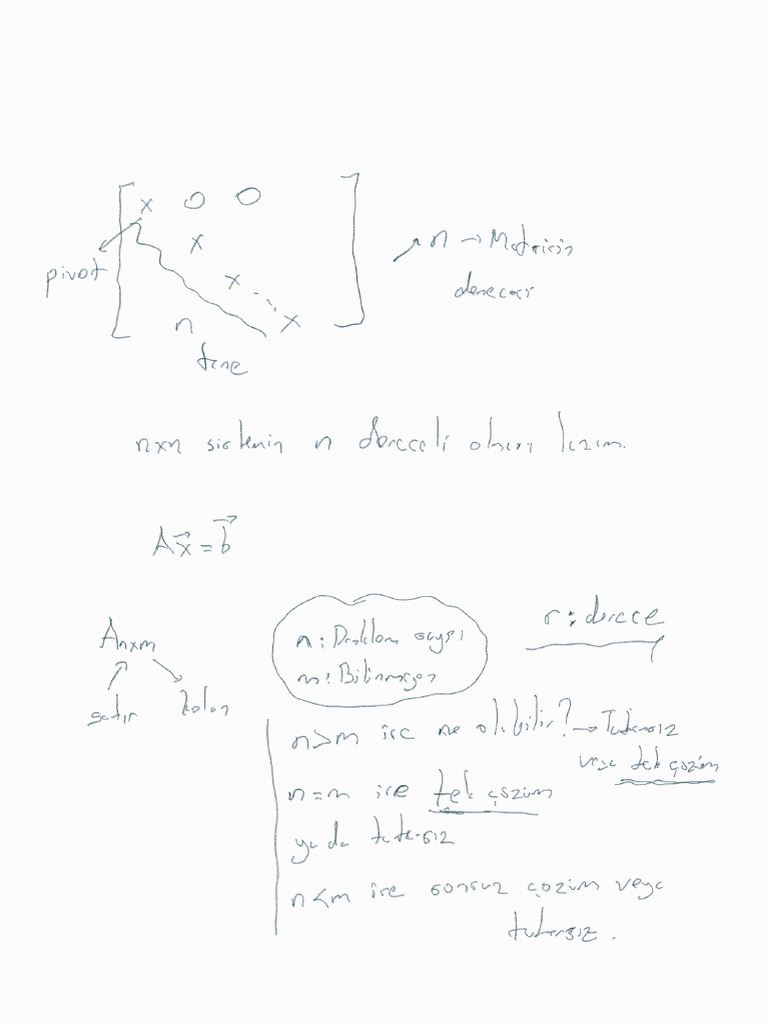 x 0 0
x
pivot
x
x
n
tane
n → Matrisin
derecesi
nxn sistemin n dereceli olması lazım.
Ax = b
Anxm
satır
kolon
n: Denklem sayısı
m: Bilinmeyen
r: derece
n>m ise ne olabilir? → Tutarsız
veya tek çözüm
n=m ise tek çözüm
ya da tutarsız
n<m ise sonsuz çözüm veya
tutarsız.